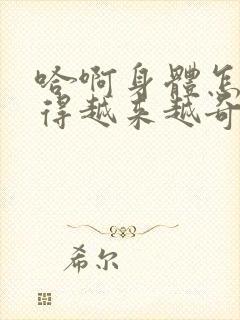 哈啊身體怎
得越来越奇
希尔